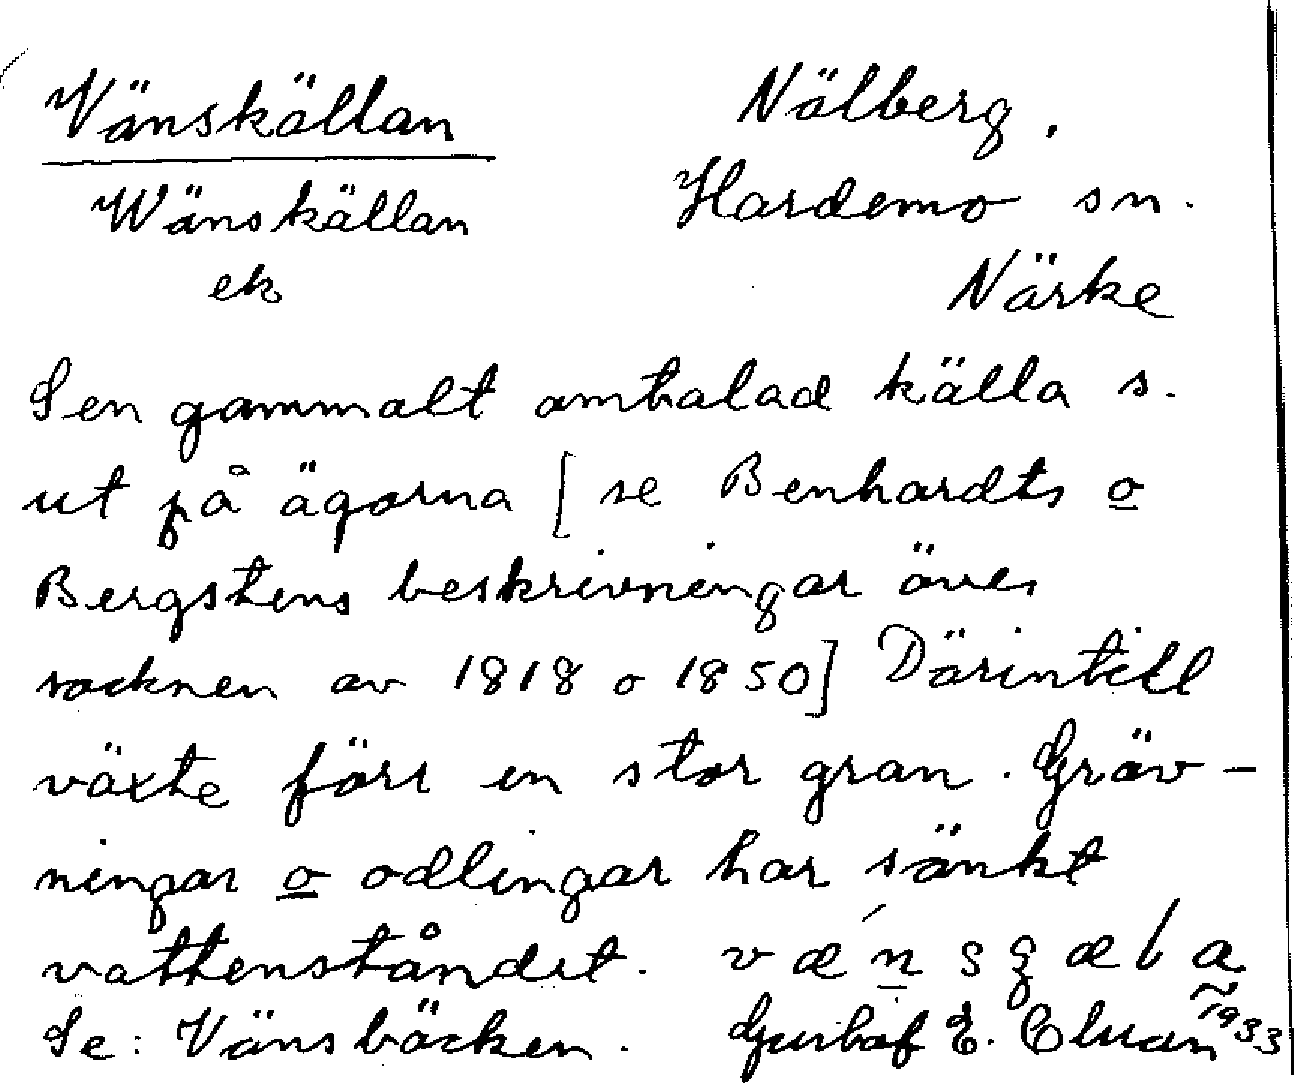 Vänskällan Nälberg.
Wänskällan Hardemo sn.
ek Närke
Sen gammalt omtalad källa s.
ut på ägorna [se Benhardts o
Bergstens beskrivningar över
socknen av 1818 o 1850] Därintill
växte förr en stor gran. Gräv-
ningar o odlingar har sänkt
vattenståndet.
Se: Vänsbäcken. Gustaf E. 1933